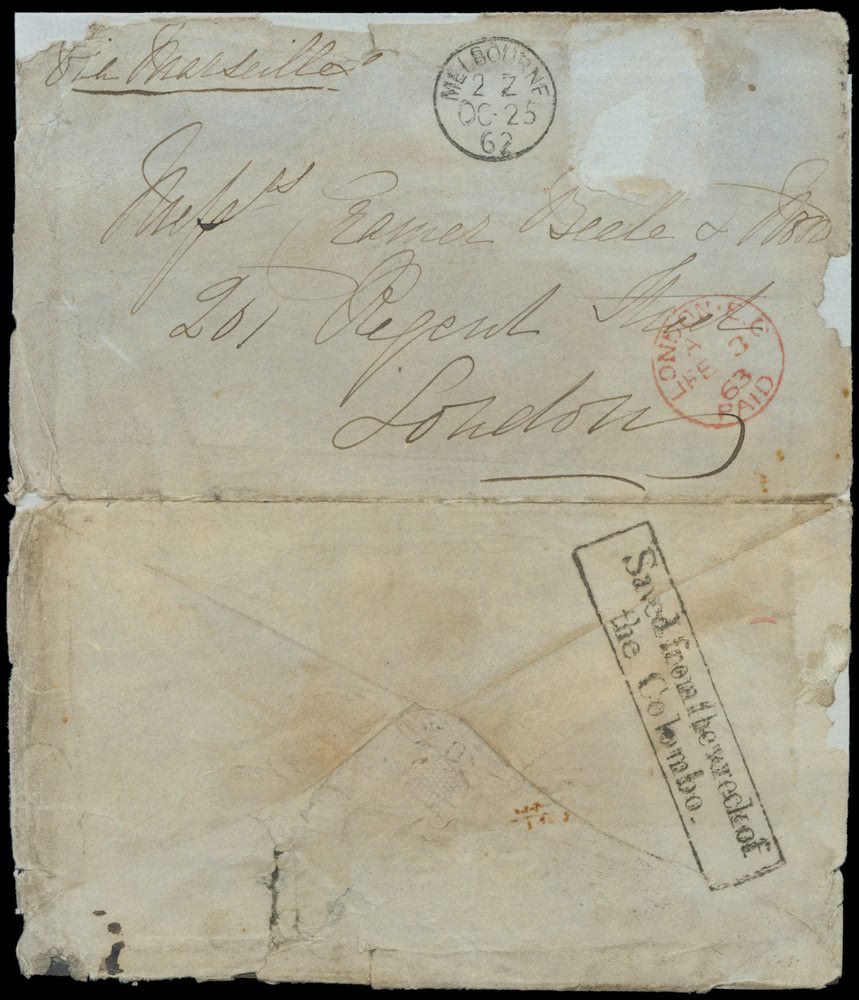 Via Marseilles
MELBOURNE
2 Z
OC·25
62
Messrs Eamer Beele &
201 Regent Street
London
LONDON·E.C
FE 3
63
PAID
Saved from the wreck of
the Colombo.